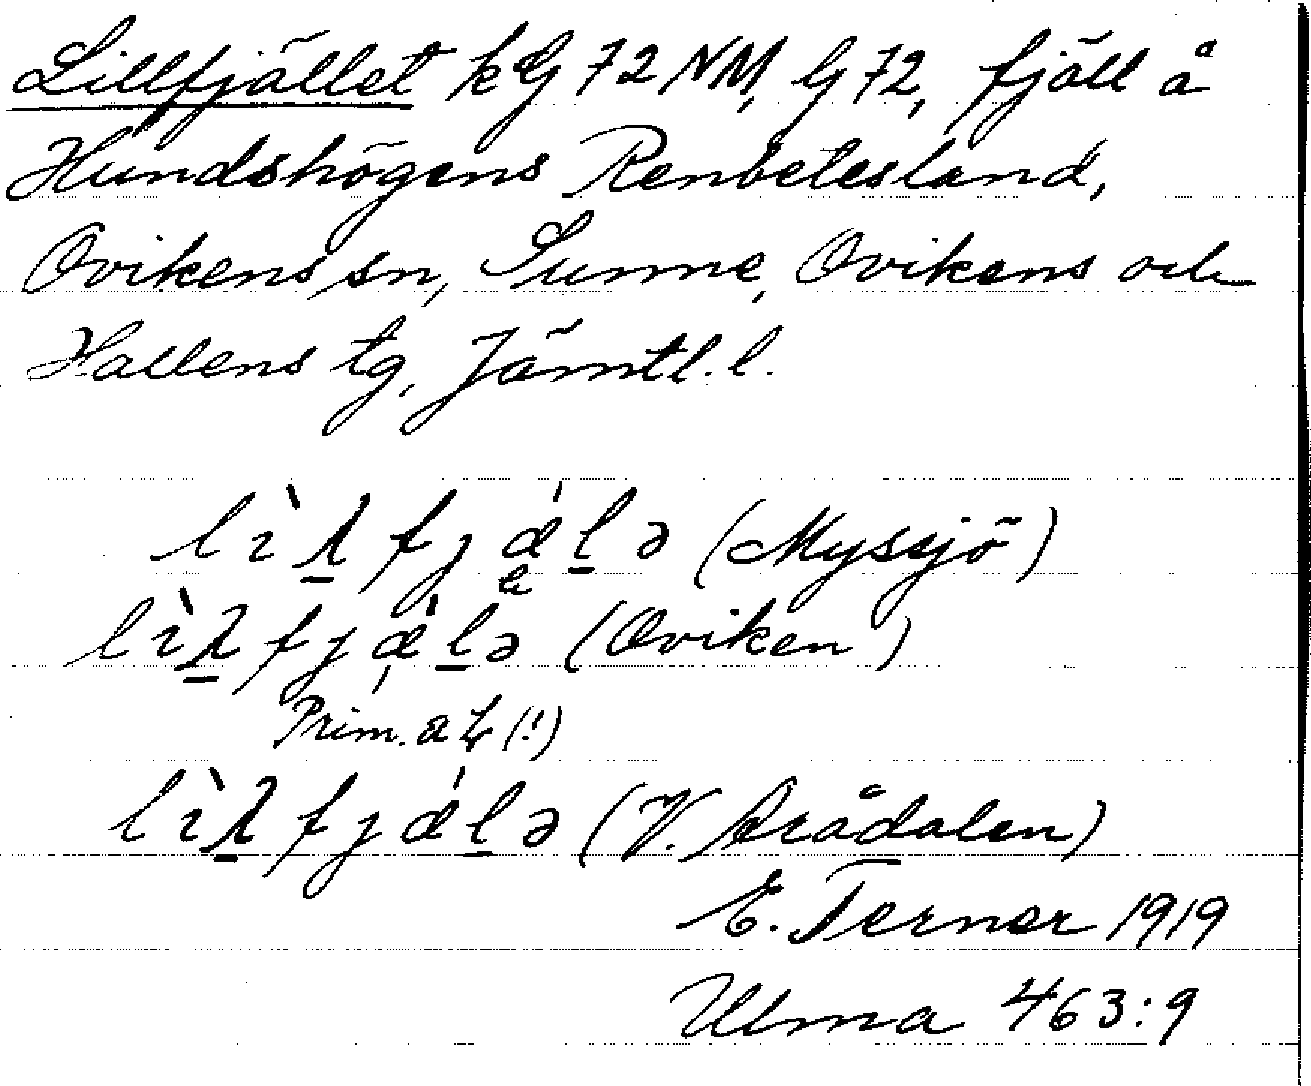 Lillfjället kG 72 NM, G 72, fjäll å
Hundshögens Renbetesland,
Ovikens sn, Sunne, Ovikens och
Hallens tg, Jämtl. l.
(Myssjö)
(Oviken)
Prim.
(V. Arådalen)
E. Ternar 1919
Ulma 463:9